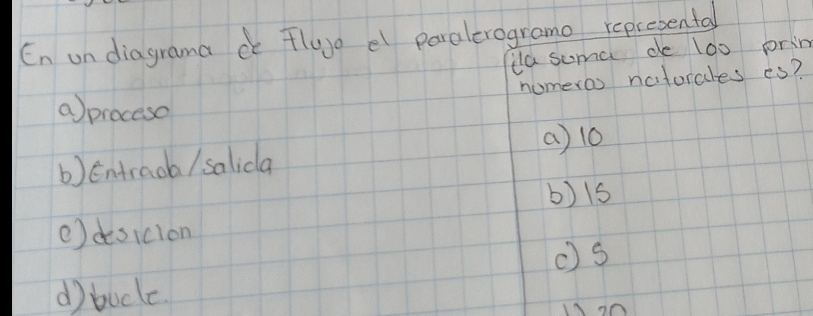 En un diagrama de flujo el paralerogramo representa
a) proceso
b) Entrada/salida
c) desicion
d) bucle.
la suma de los prim
numeros naturales es?
a) 10
b) 15
c) 5
20